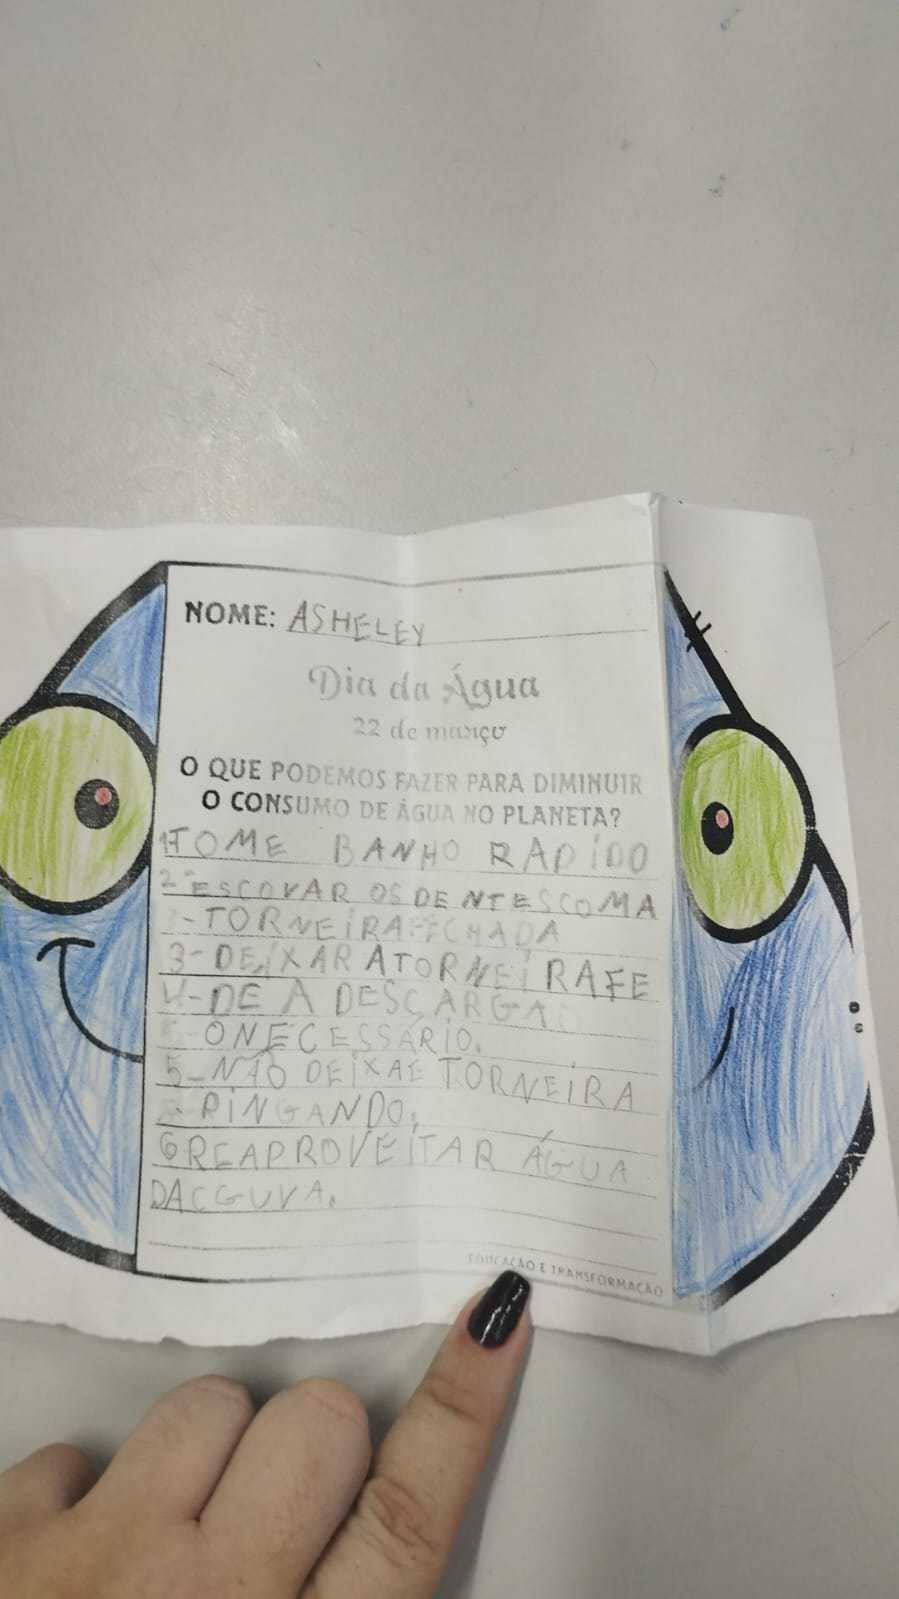 NOME: ASHELEY
Dia da Água
22 de março
O QUE PODEMOS FAZER PARA DIMINUIR
O CONSUMO DE ÁGUA NO PLANETA?
1-TOME BANHO RAPIDO
2-ESCOVAR OS DENTESCOMA
TORNEIRAFECHADA
3-DEIXAR ATORNEIRAFE
4-DE A DESCARGA
ONECESSÁRIO.
5-NÃO DEIXAE TORNEIRA
PINGANDO.
6REAPROVEITAR ÁGUA
DACGUVA.
EDUCAÇÃO E TRANSFORMAÇÃO